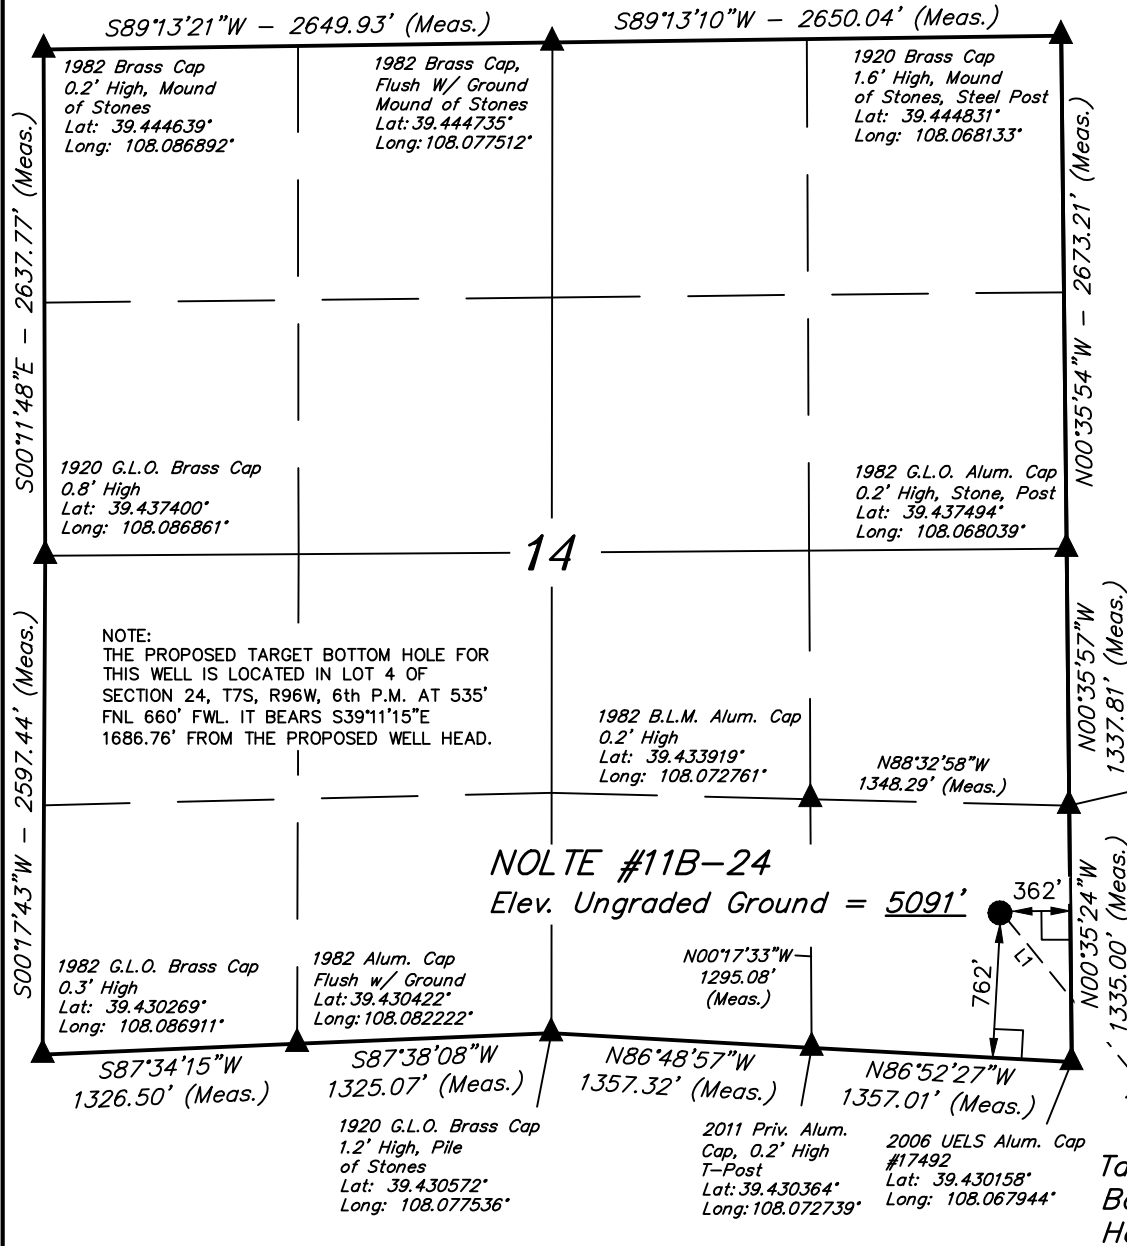 S89°13'21"W - 2649.93' (Meas.)
S89°13'10"W - 2650.04' (Meas.)
1982 Brass Cap
0.2' High, Mound
of Stones
Lat: 39.444639°
Long: 108.086892°
1982 Brass Cap,
Flush W/ Ground
Mound of Stones
Lat: 39.444735°
Long: 108.077512°
1920 Brass Cap
1.6' High, Mound
of Stones, Steel Post
Lat: 39.444831°
Long: 108.068133°
S00°11'48"E - 2637.77' (Meas.)
N00°35'54"W - 2673.21' (Meas.)
1920 G.L.O. Brass Cap
0.8' High
Lat: 39.437400°
Long: 108.086861°
1982 G.L.O. Alum. Cap
0.2' High, Stone, Post
Lat: 39.437494°
Long: 108.068039°
14
NOTE:
THE PROPOSED TARGET BOTTOM HOLE FOR
THIS WELL IS LOCATED IN LOT 4 OF
SECTION 24, T7S, R96W, 6th P.M. AT 535'
FNL 660' FWL. IT BEARS S39°11'15"E
1686.76' FROM THE PROPOSED WELL HEAD.
S00°17'43"W - 2597.44' (Meas.)
N00°35'57"W
1337.81' (Meas.)
1982 B.L.M. Alum. Cap
0.2' High
Lat: 39.433919°
Long: 108.072761°
N88°32'58"W
1348.29' (Meas.)
NOLTE #11B-24
Elev. Ungraded Ground = 5091'
362'
762'
L1
N00°35'24"W
1335.00' (Meas.)
N00°17'33"W
1295.08'
(Meas.)
1982 G.L.O. Brass Cap
0.3' High
Lat: 39.430269°
Long: 108.086911°
1982 Alum. Cap
Flush w/ Ground
Lat: 39.430422°
Long: 108.082222°
S87°34'15"W
1326.50' (Meas.)
S87°38'08"W
1325.07' (Meas.)
N86°48'57"W
1357.32' (Meas.)
N86°52'27"W
1357.01' (Meas.)
1920 G.L.O. Brass Cap
1.2' High, Pile
of Stones
Lat: 39.430572°
Long: 108.077536°
2011 Priv. Alum.
Cap, 0.2' High
T-Post
Lat: 39.430364°
Long: 108.072739°
2006 UELS Alum. Cap
#17492
Lat: 39.430158°
Long: 108.067944°